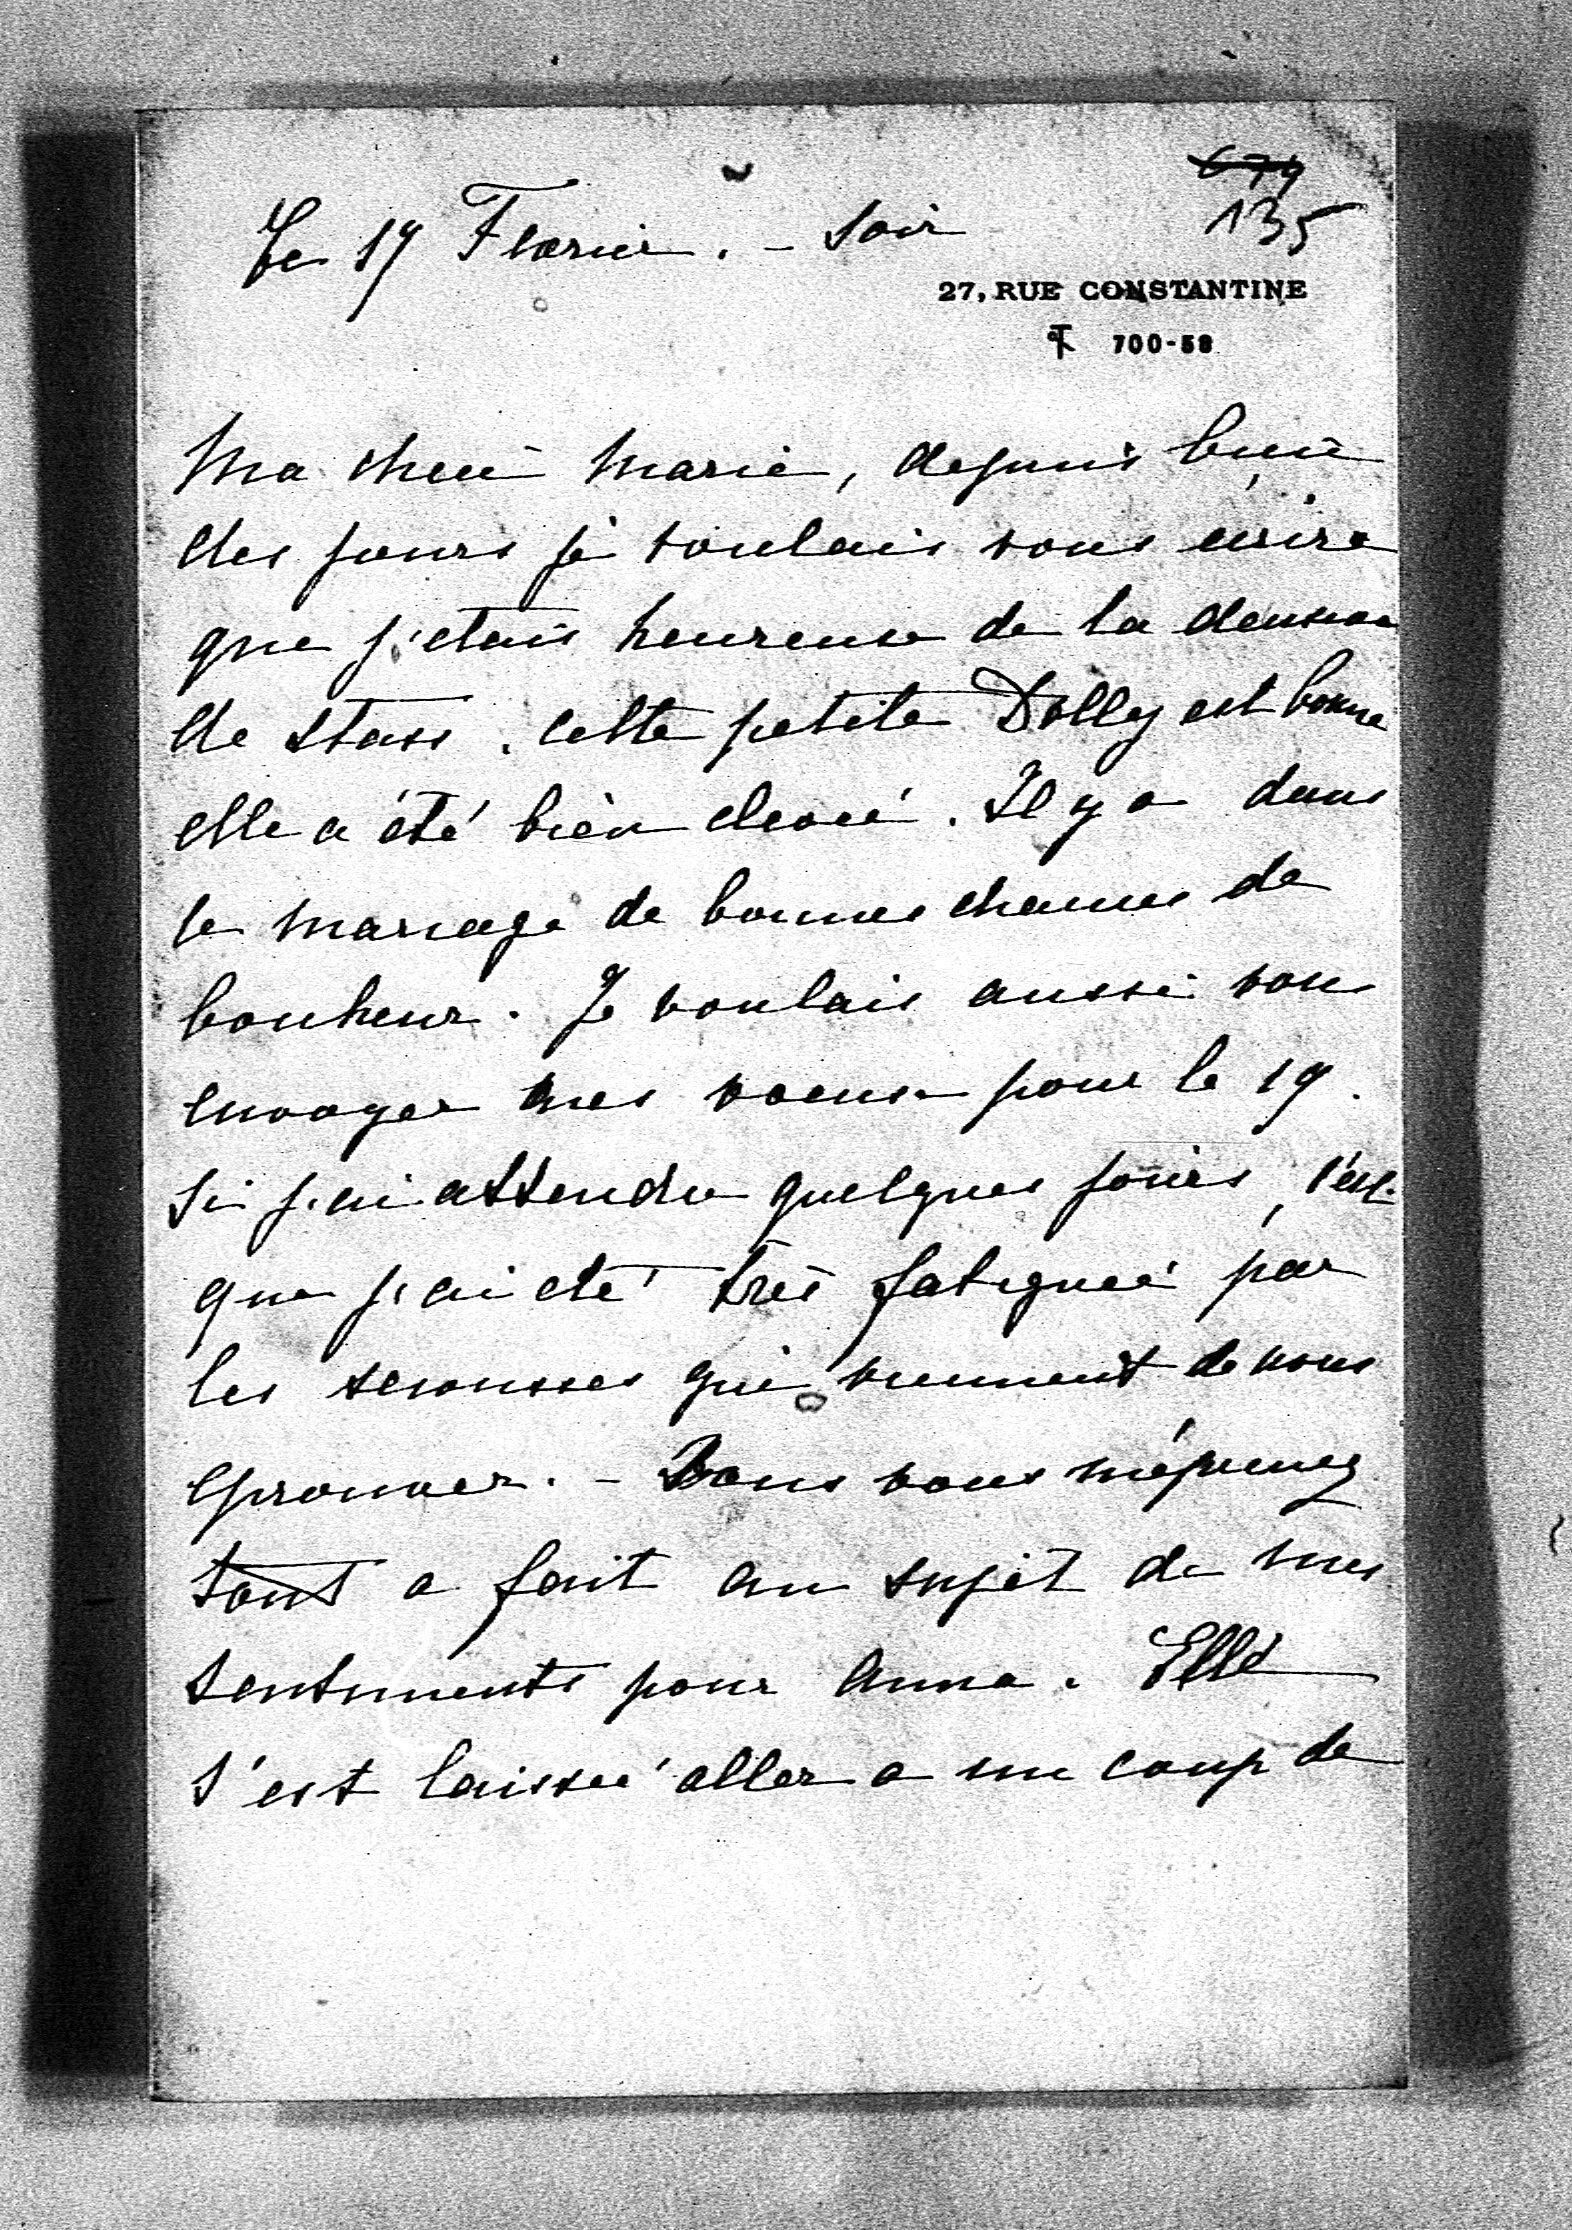 ~~679~~
135
Le 17 Fevrier. - Soir
27, RUE CONSTANTINE
T 700-58
Ma chere Marie, depuis bien
des jours je voulais vous ecrire
que j'etais heureuse de la decision
de Stass. Cette petite Dolly est bonne
elle a été bien elevée. Il y a dans
le mariage de bonnes chances de
bonheur. Je voulais aussi vous
envoyer mes voeux pour le 19.
Si j'ai attendu quelques jours, c'est
que j'ai eté très fatiguée par
les secousses qui viennent de nous
eprouver. - Vous vous méprenez
tout a fait au sujet de mes
sentiments pour Anna. Elle
s'est laissée aller a un coup de